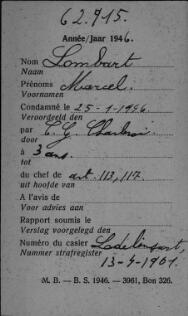 62.915.
Année/Jaar 1946.
Nom Lombart
Naam
Prénoms Marcel.
Voornamen
Condamné le 25-1-1946.
Veroordeeld den
par C. G. Charleroi
door
à 3 ans.
tot
du chef de art. 113, 117.
uit hoofde van
A l'avis de
Voor advies aan
Rapport soumis le
Verslag voorgelegd den
Numéro du casier Lodelinsart,
Nummer strafregister 13-4-1901.
M. B. — B. S. 1946. — 3961, Bon 326.